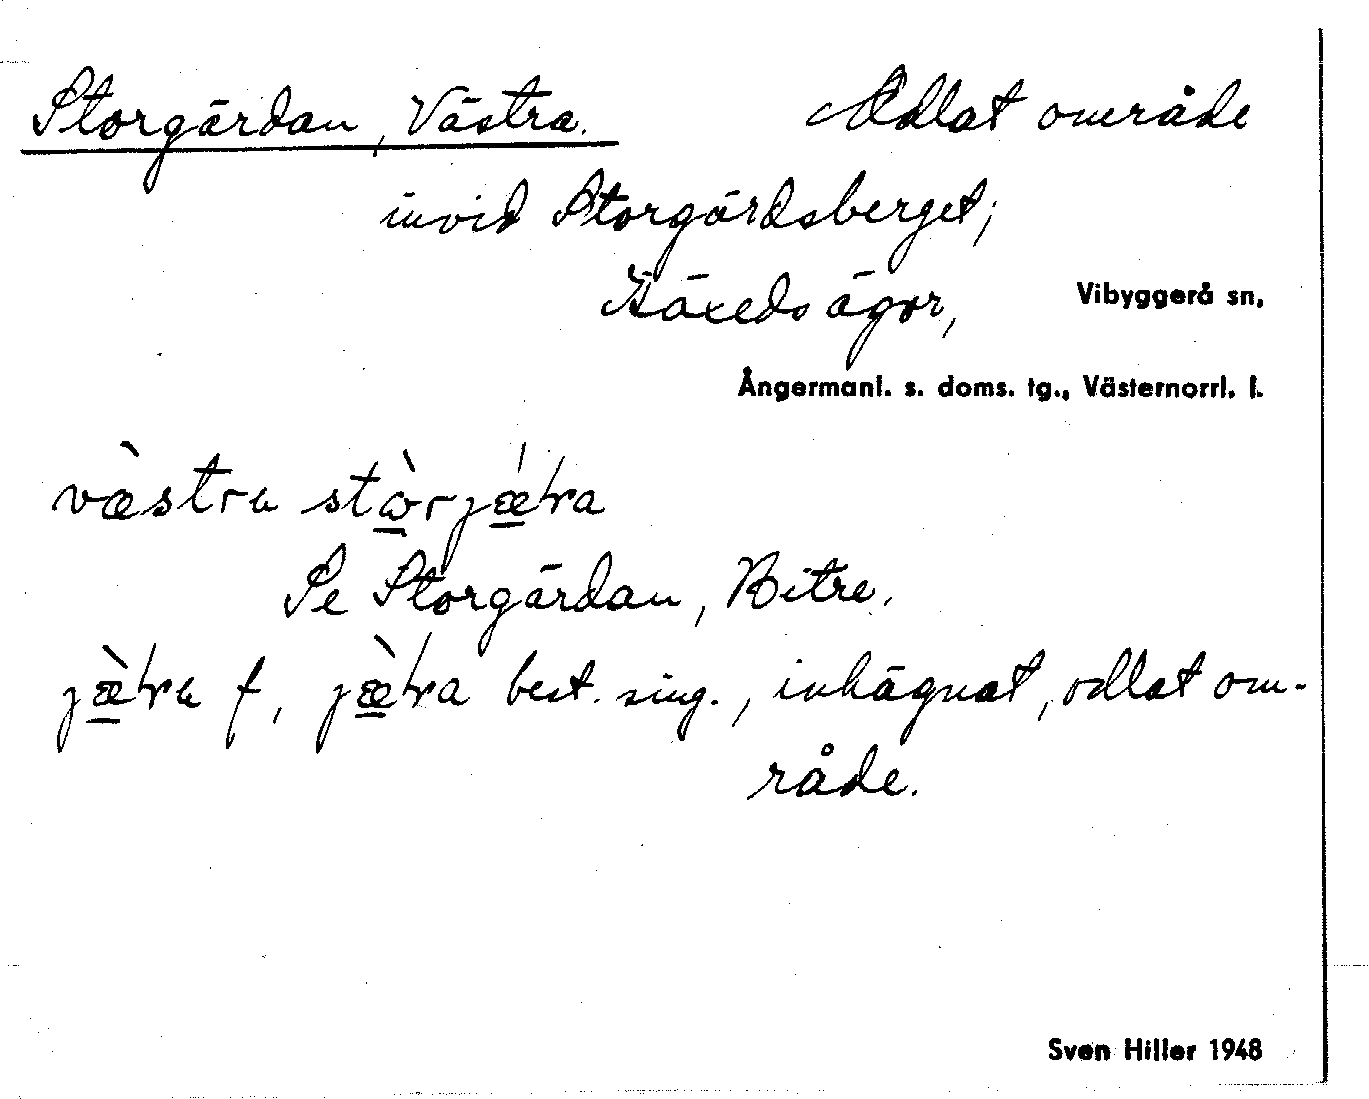 Storgärdan, Västra. Odlat område
invid Storgärdsberget;
Häxeds ägor, Vibyggerå sn,
Ångermanl. s. doms. tg., Västernorrl. l.
Se Storgärdan, Bitre.
f, best. sing., inhägnat, odlat om-
råde.
Sven Hiller 1948